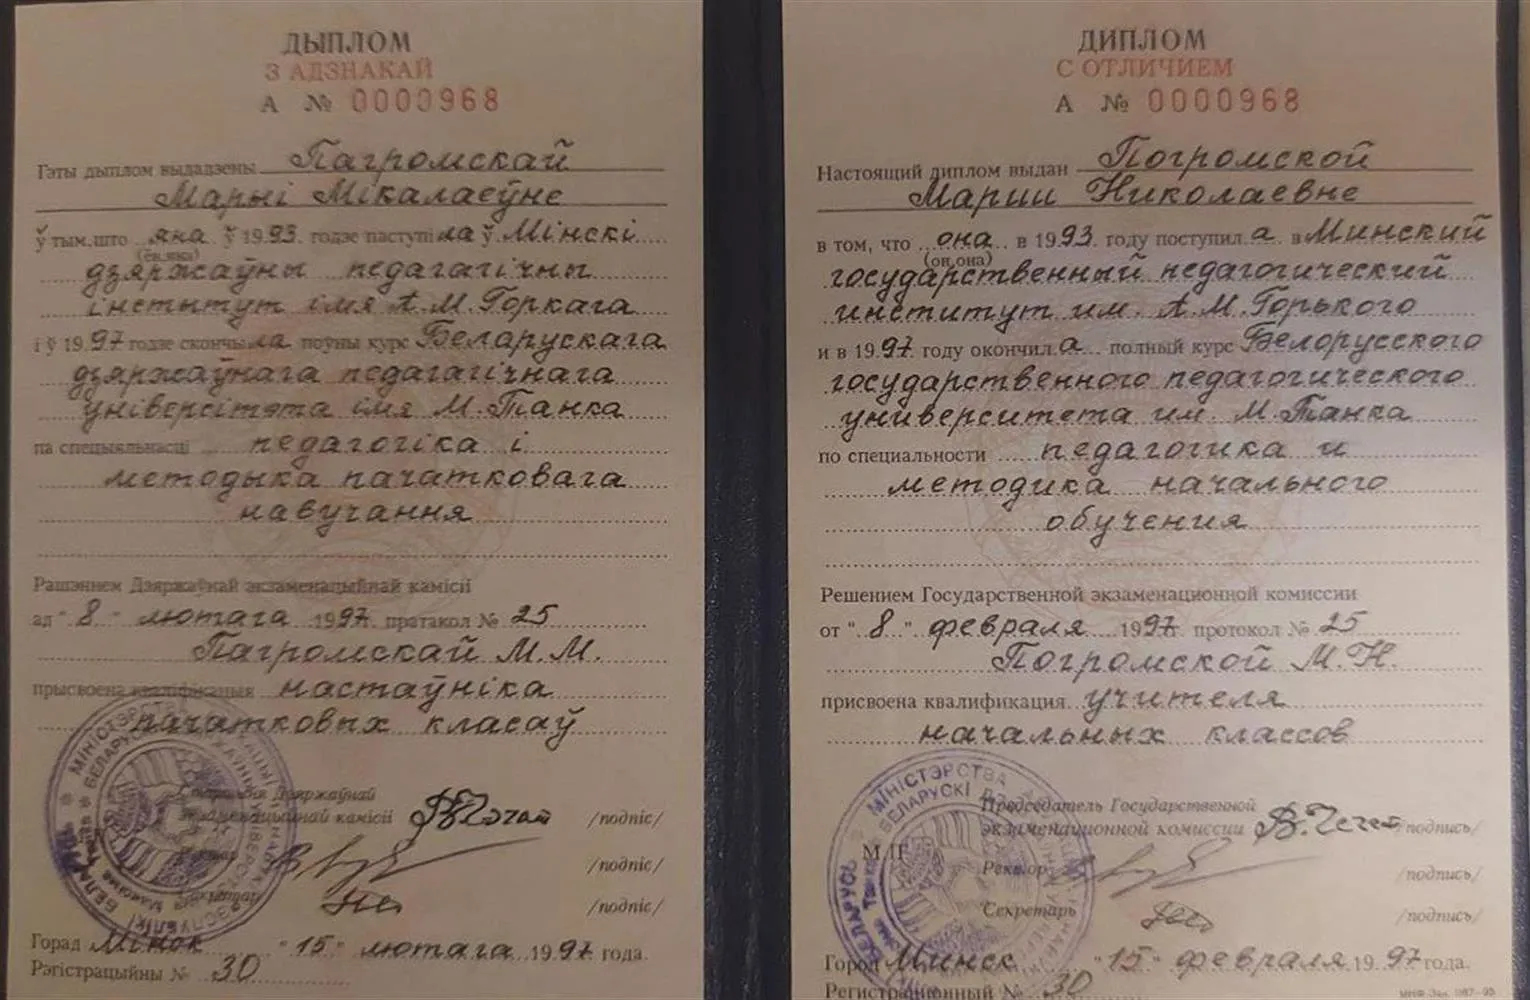 ДЫПЛОМ
З АДЗНАКАЙ
А № 0000968
Гэты дыплом выдадзены Пагромскай
Марыі Мікалаеўне
ў тым, што яна ў 1993. годзе паступіла ў Мінскі
(ён, яна)
дзяржаўны педагагічны
інстытут імя А.М. Горкага
і ў 1997 годзе скончыла поўны курс Беларускага
дзяржаўнага педагагічнага
універсітэта імя М. Танка
па спецыяльнасці педагогіка і
методыка пачатковага
навучання
Рашэннем Дзяржаўнай экзаменацыйнай камісіі
ад "8" лютага 1997г. пратакол № 25
Пагромскай М.М.
прысвоена кваліфікацыя настаўніка
пачатковых класаў
Старшыня Дзяржаўнай
экзаменацыйнай камісіі /подпіс/
Рэктар /подпіс/
Сакратар /подпіс/
Горад Мінск "15" лютага 1997 года.
Рэгістрацыйны № 30
ДИПЛОМ
С ОТЛИЧИЕМ
А № 0000968
Настоящий диплом выдан Погромской
Марии Николаевне
в том, что она в 1993. году поступила в Минский
(он, она)
государственный педагогический
институт им. А.М. Горького
и в 1997 году окончила полный курс Белорусского
государственного педагогического
университета им. М. Танка
по специальности педагогика и
методика начального
обучения
Решением Государственной экзаменационной комиссии
от "8" февраля 1997г. протокол № 25
Погромской М.Н.
присвоена квалификация учителя
начальных классов
Председатель Государственной
экзаменационной комиссии /подпись/
М.П.
Ректор /подпись/
Секретарь /подпись/
Город Минск "15" февраля 1997 года.
Регистрационный № 30